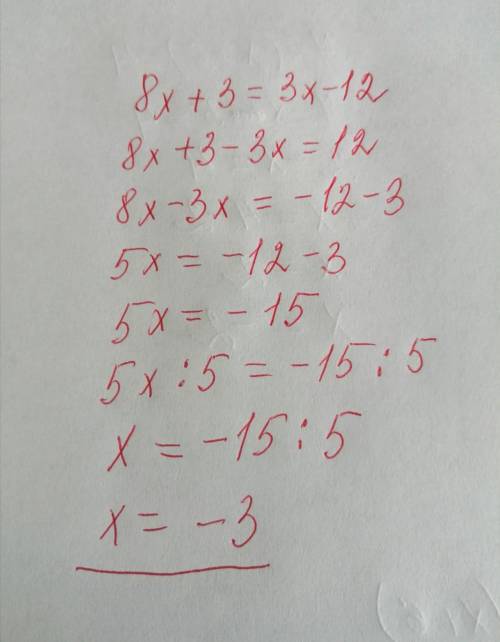 8x + 3 = 3x - 12
8x + 3 - 3x = 12
8x - 3x = -12 - 3
5x = -12 - 3
5x = -15
5x : 5 = -15 : 5
x = -15 : 5
x = -3